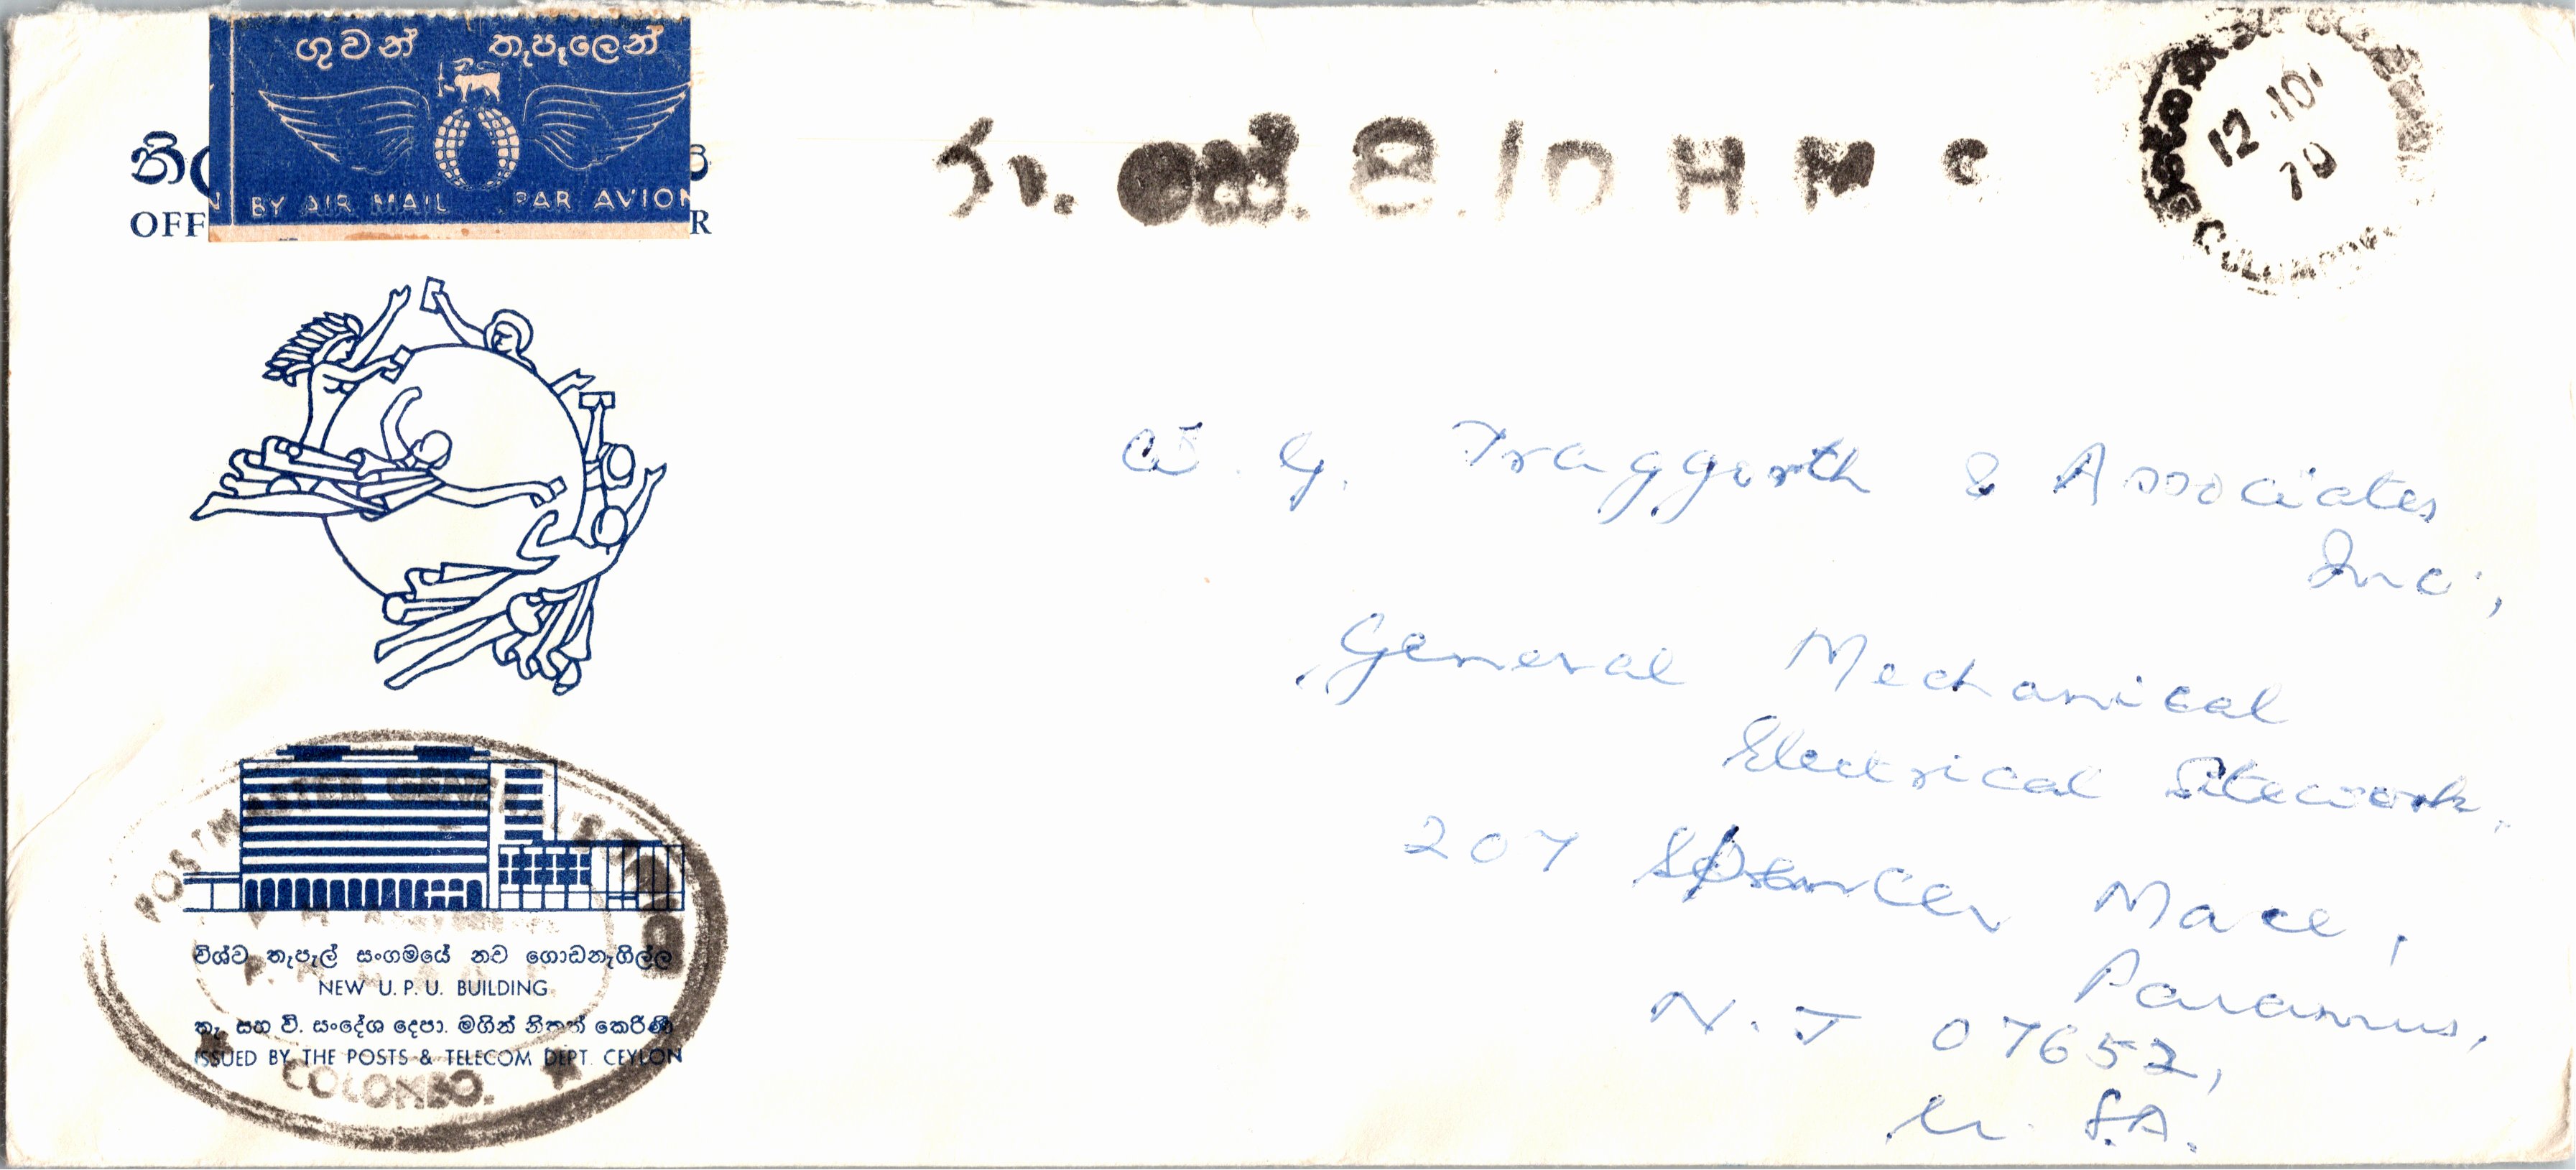 ගුවන් තැපෑලෙන්
BY AIR MAIL PAR AVION
නි
OFF R
රා. සේ. පි./O H M S
12 .10.
70
COLOMBO
W. G. Fraggorth & Associates
Inc.,
General Mechanical
Electrical Sitework.
207 Spencer Mace,
Paramus,
N. J 07652,
U. S.A.
POSTMASTER GENERAL'S
විශ්ව තැපැල් සංගමයේ නව ගොඩනැගිල්ල
NEW U. P. U. BUILDING
තැ. සහ වි. සංදේශ දෙපා. මගින් නිකුත් කෙරිණි
ISSUED BY THE POSTS & TELECOM DEPT. CEYLON
COLOMBO.